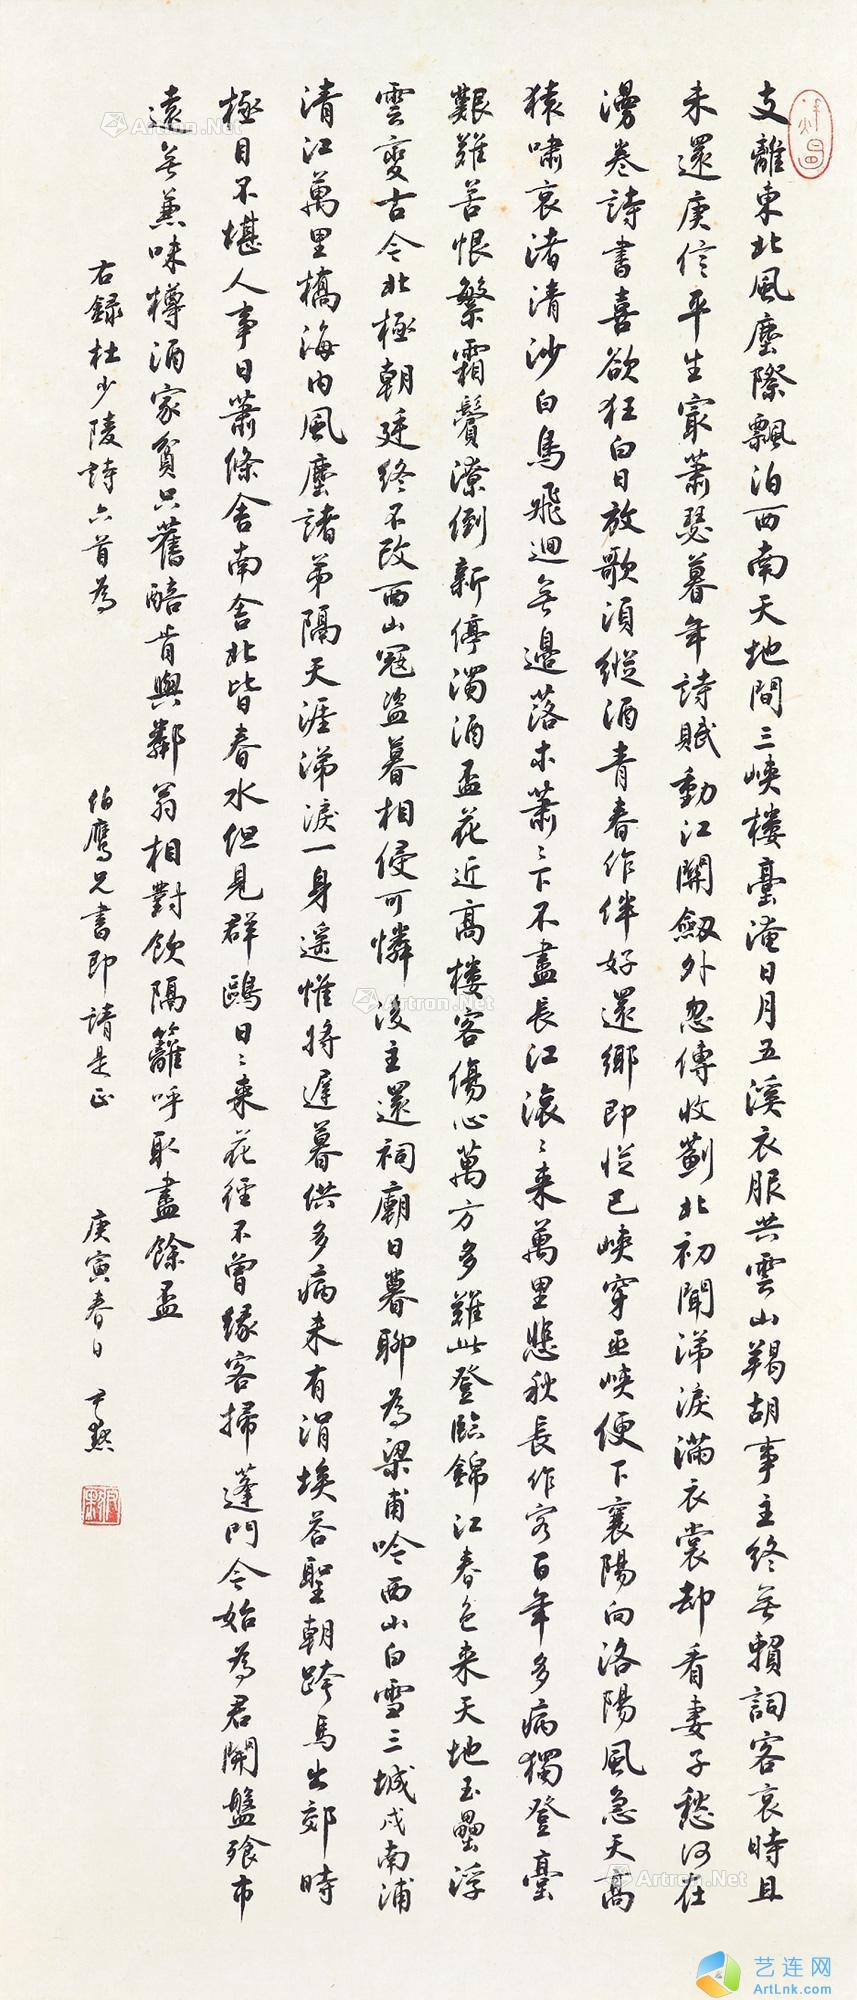 支離東北風塵際飄泊西南天地間三峽樓臺淹日月五溪衣服共雲山羯胡事主終無賴詞客哀時且
未還庾信平生最蕭瑟暮年詩賦動江關劔外忽傳收薊北初聞涕淚滿衣裳却看妻子愁何在
漫卷詩書喜欲狂白日放歌須縱酒青春作伴好還鄉即從巴峽穿巫峽便下襄陽向洛陽風急天高
猿嘯哀渚清沙白鳥飛迴無邊落木蕭〻下不盡長江滾〻來萬里悲秋長作客百年多病獨登臺
艱難苦恨繁霜鬢潦倒新停濁酒盃花近高樓客傷心萬方多難此登臨錦江春色來天地玉壘浮
雲變古今北極朝廷終不改西山冦盜暮相侵可憐後主還祠廟日暮聊為梁甫吟西山白雪三城戍南浦
清江萬里橋海內風塵諸弟隔天涯涕淚一身遥惟將遲暮供多病未有涓埃答聖朝跨馬出郊時
極目不堪人事日蕭條舍南舍北皆春水但見群鷗日〻來花徑不曾緣客掃蓬門今始為君開盤飱市
遠無兼味樽酒家貧只舊醅肯與鄰翁相對飲隔籬呼取盡餘盃
右録杜少陵詩六首為
伯鷹兄書即請是正
庚寅春日 尹默
Artron.Net
Artron.Net
Artron.Net
Artron.Net
Artron.Net
艺连网
ArtLink.com